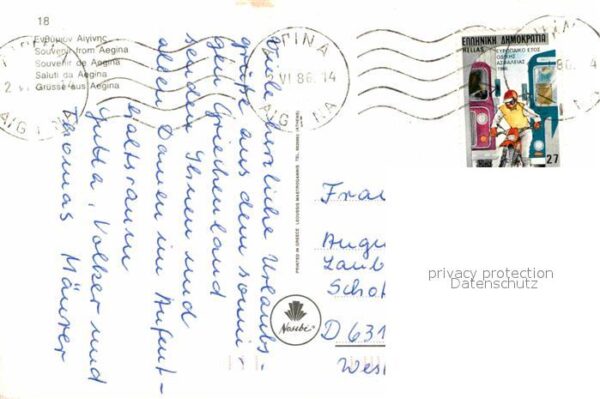 18
Ενθύμιον Αιγίνης
Souvenir from Aegina
Souvenir de Aegina
Saluti da Aegina
Grüsse aus Aegina
ΑΙΓΙΝΑ
VI 86. 14
AIGINA
ΕΛΛΗΝΙΚΗ ΔΗΜΟΚΡΑΤΙΑ
HELLAS
ΕΥΡΩΠΑΪΚΟ ΕΤΟΣ
ΟΔΙΚΗΣ
ΑΣΦΑΛΕΙΑΣ
1986
27
Viele herzliche Urlaubs-
grüße aus dem sonni-
gen Griechenland
senden Ihnen und
allen Damen im Aufent-
haltsraum
Jutta, Volker und
Thomas Mäurer
PRINTED IN GREECE
Noubé
Frau
Augu
Laub
Schof
D 631
Wes
privacy protection
Datenschutz